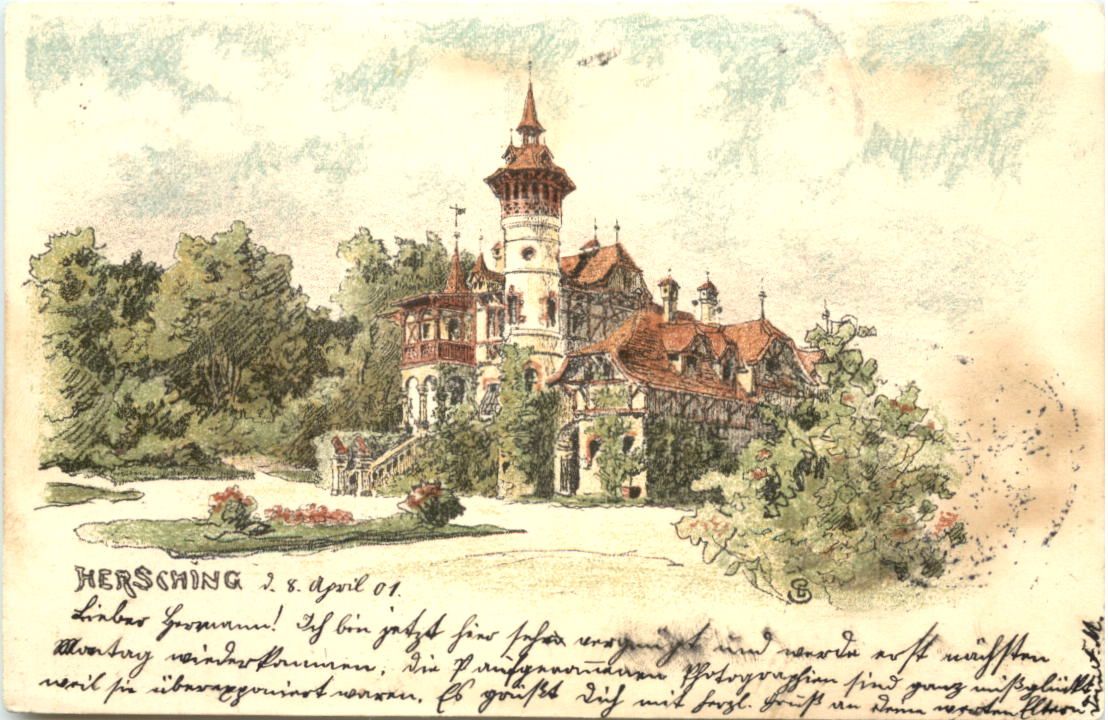 HERSCHING d. 8. April 01.
Lieber Hermann! Ich bin jetzt hier sehr vergnügt und werde erst nächsten
Montag wiederkommen, die aufgenommenen Photographien sind ganz mißglückt
weil sie überexponiert waren. Es grüßt Dich mit herzl. Gruß an Deine werten Eltern